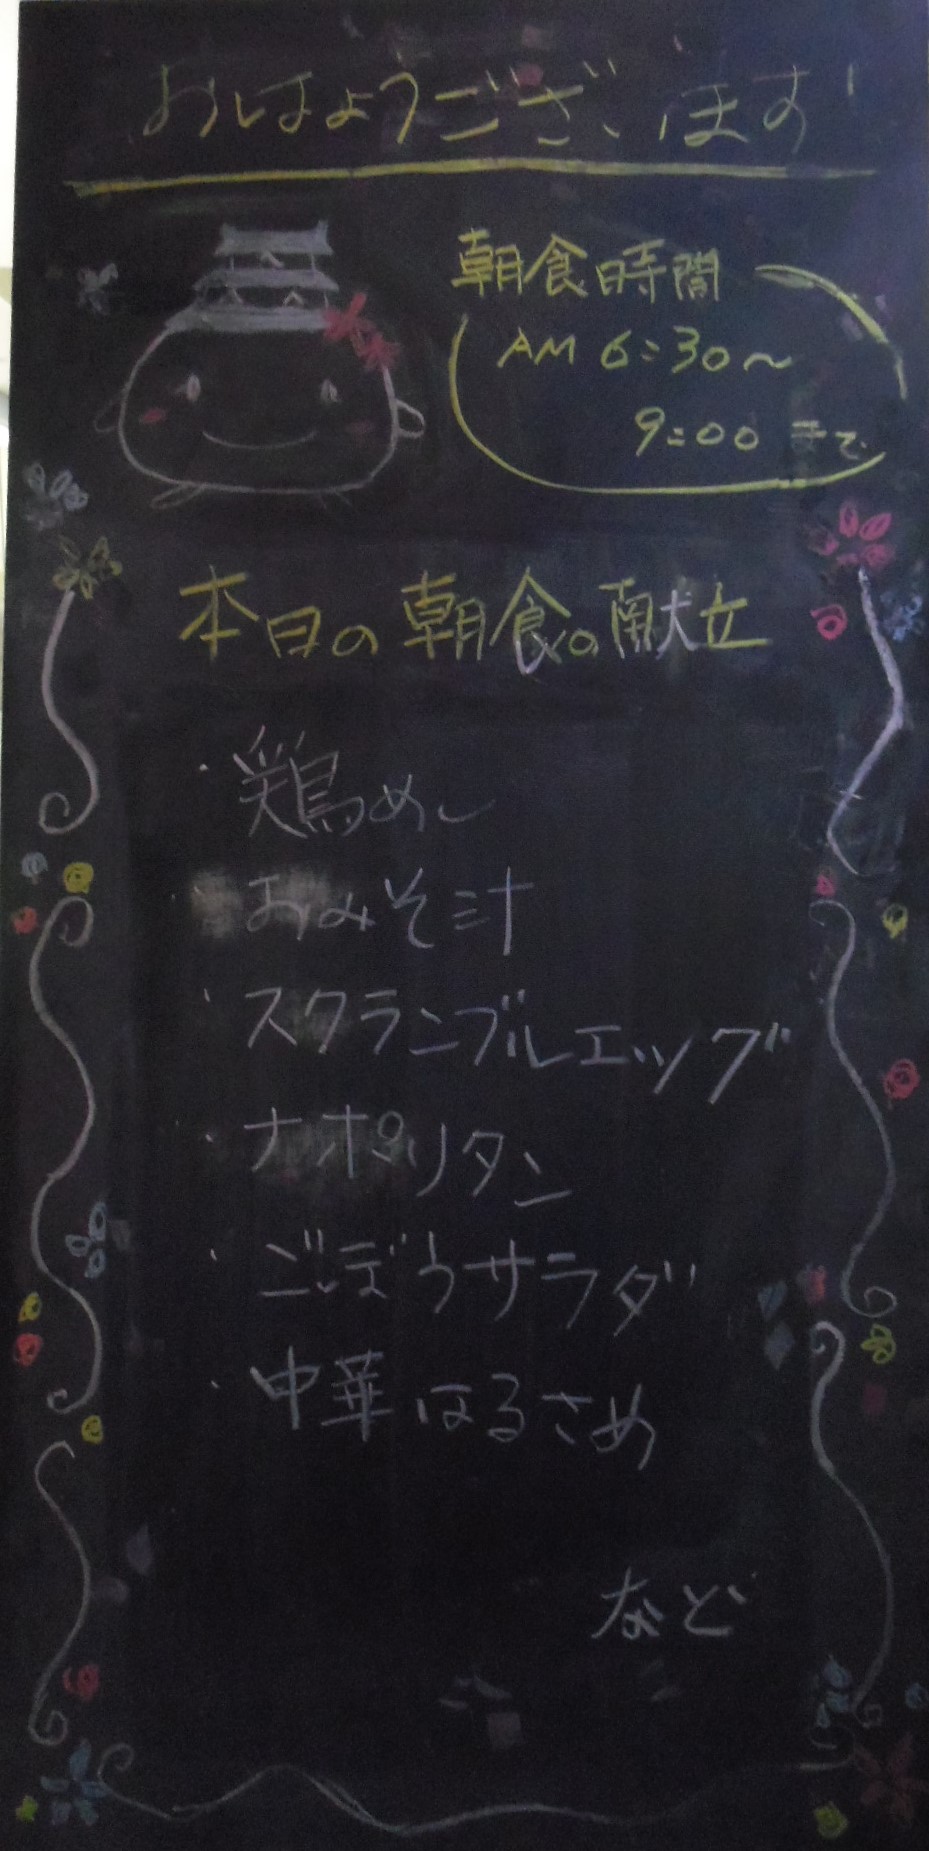 おはようございます!
朝食時間
AM 6:30〜
9:00 まで
本日の朝食の献立
・鶏めし
・おみそ汁
・スクランブルエッグ
・ナポリタン
・ごぼうサラダ
・中華はるさめ
など